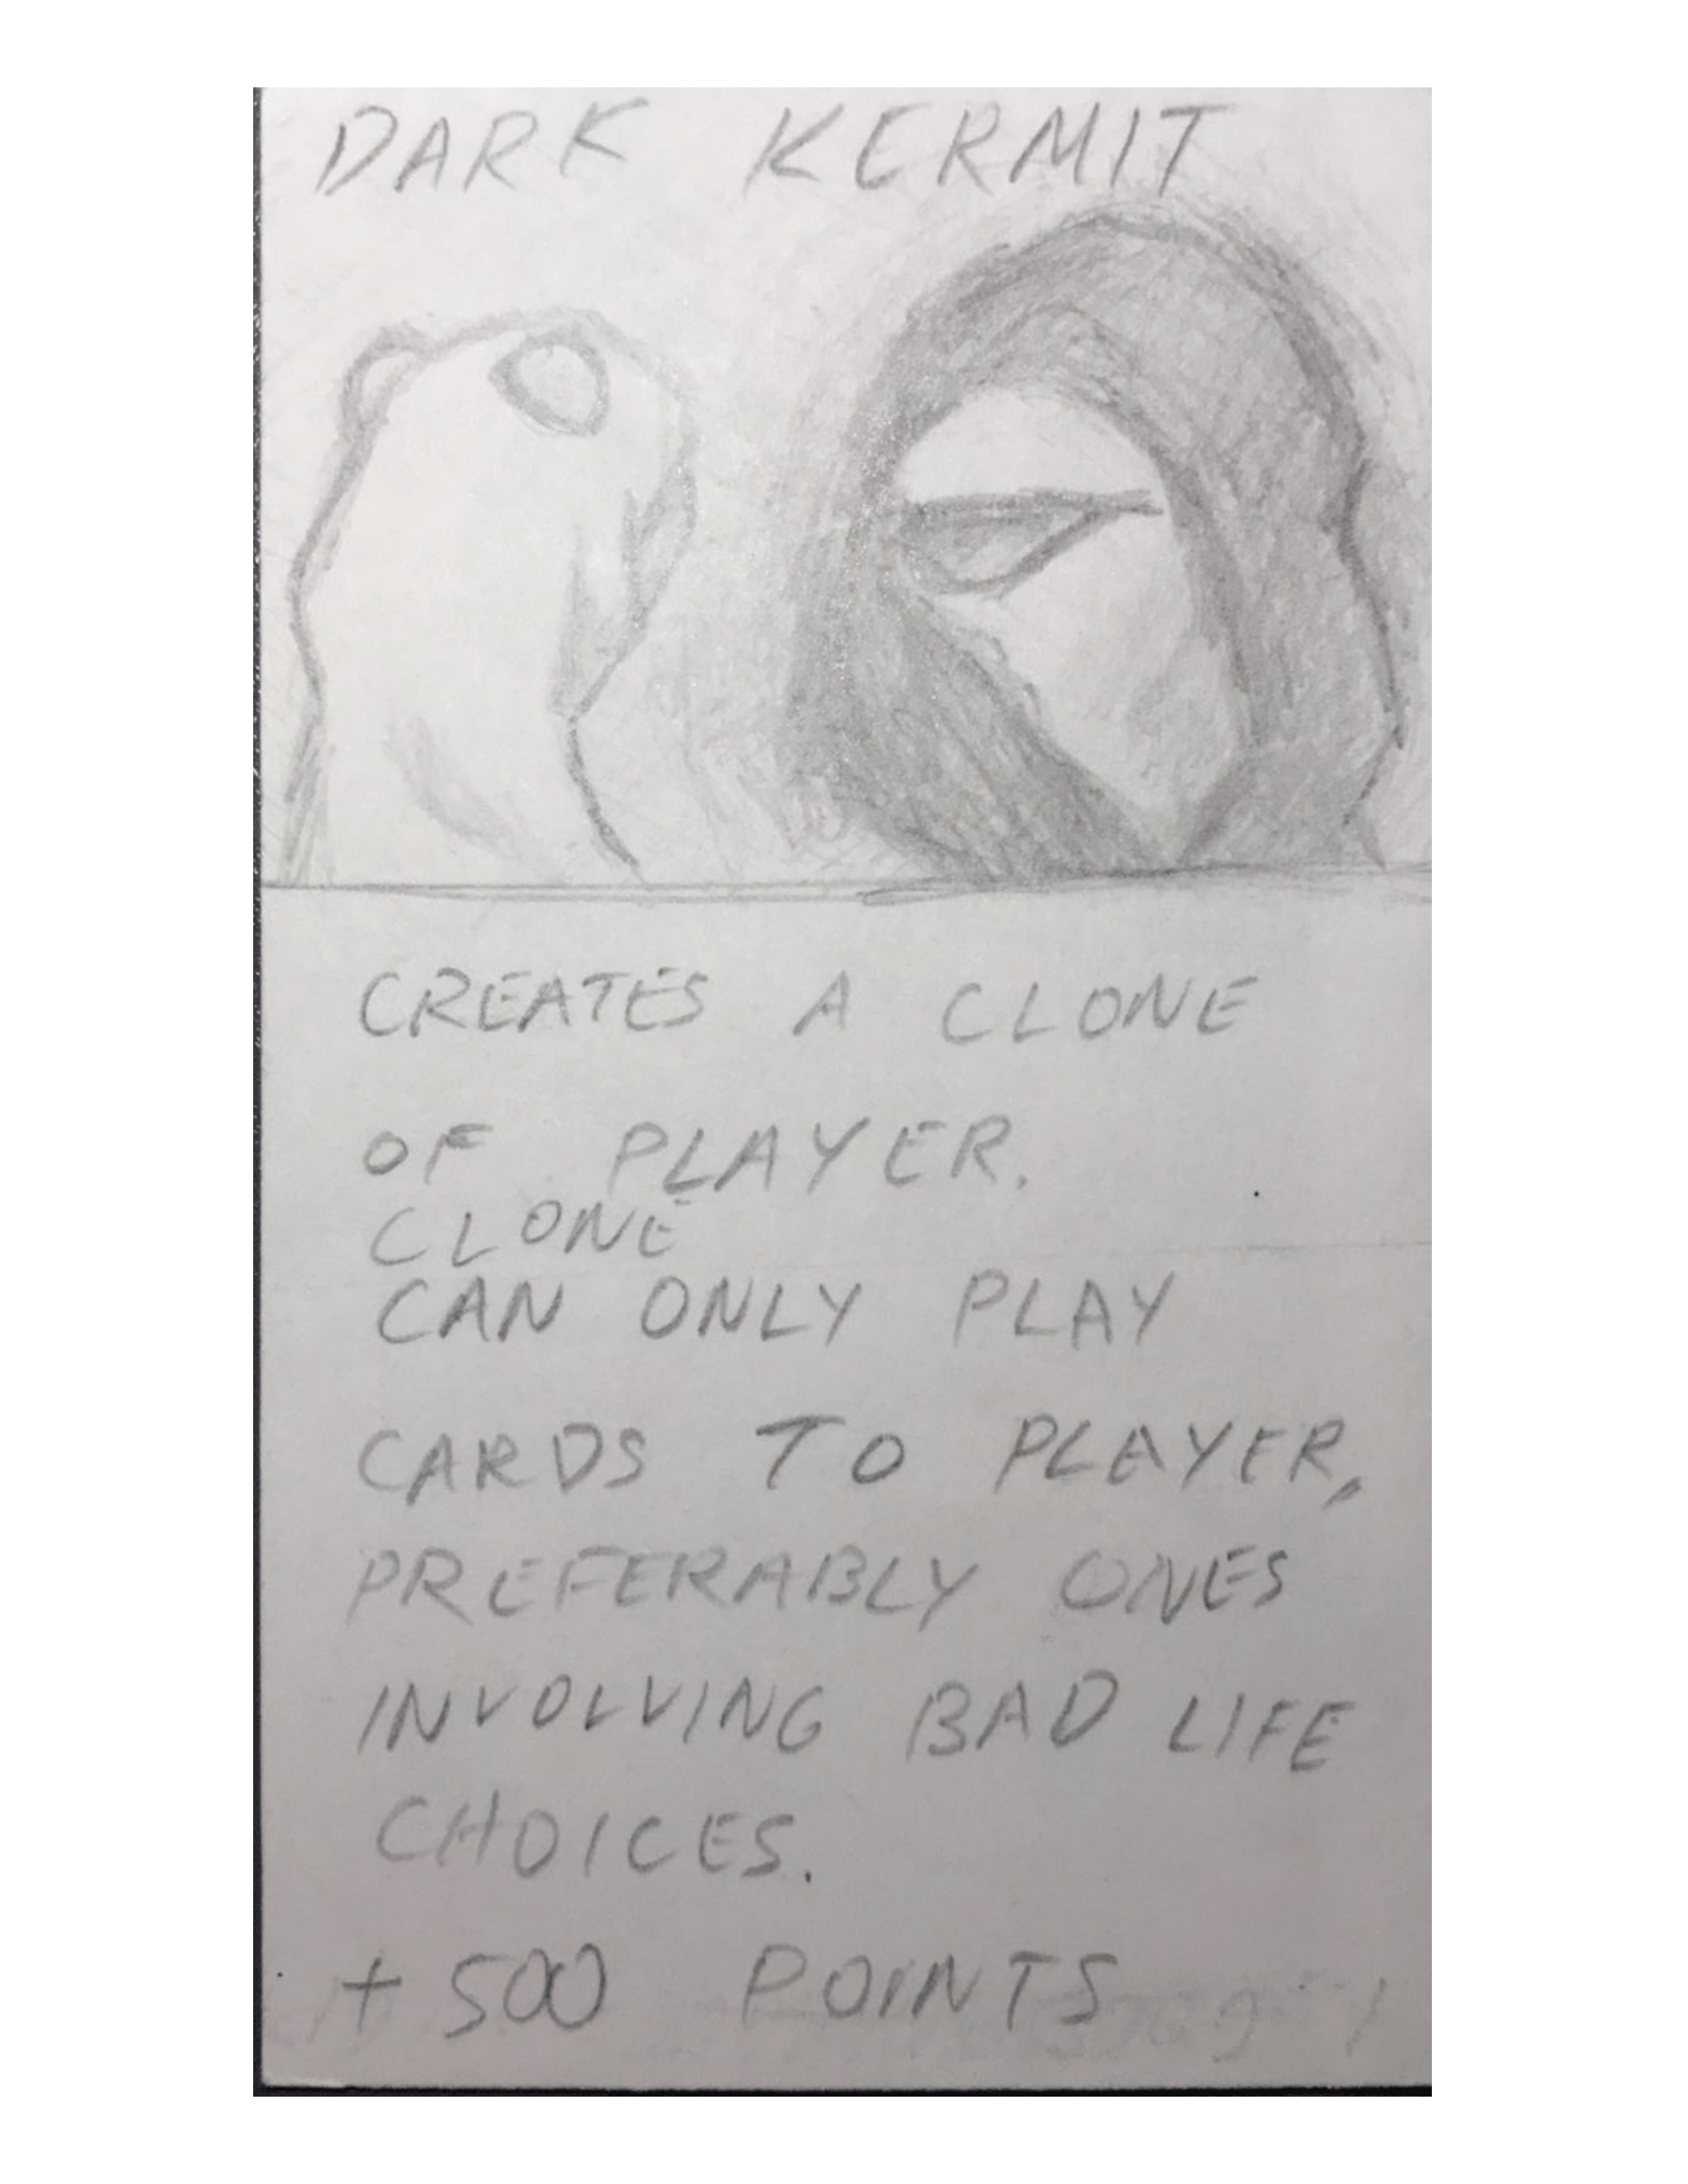 DARK KERMIT
CREATES A CLONE
OF PLAYER.
CLONE
CAN ONLY PLAY
CARDS TO PLAYER,
PREFERABLY ONES
INVOLVING BAD LIFE
CHOICES.
+ 500 POINTS